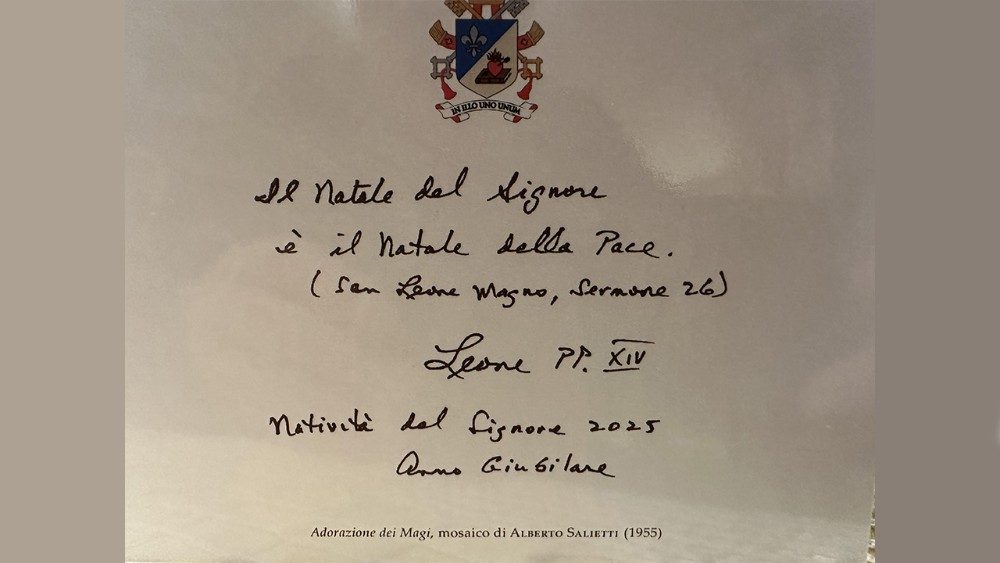 IN ILLO UNO UNUM
Il Natale del Signore
è il Natale della Pace.
(San Leone Magno, Sermone 26)
Leone PP. XIV
Natività del Signore 2025
Anno Giubilare
Adorazione dei Magi, mosaico di ALBERTO SALIETTI (1955)